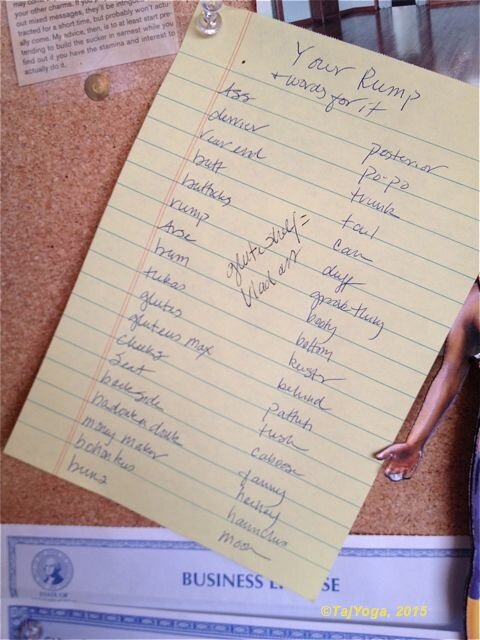 your other charms. If you have
out mixed messages, they'll be intrigued
tracted for a short time, but probably won't actu-
ally come. My advice, then, is to at least start pre-
tending to build the sucker in earnest while you
find out if you have the stamina and interest to
actually do it.
Your Rump
+ words for it
Ass
derrier
rear end
butt
buttocks
rump
Arse
bum
tukas
glutes
gluteus max
cheeks
Seat
backside
badonkadonk
money maker
bohonkus
buns
posterior
po-po
trunk
tail
can
duff
booty
bottom
keister
behind
tush
caboose
fanny
heiney
haunches
moon
=
BUSINESS L SE
©TajYoga, 2015